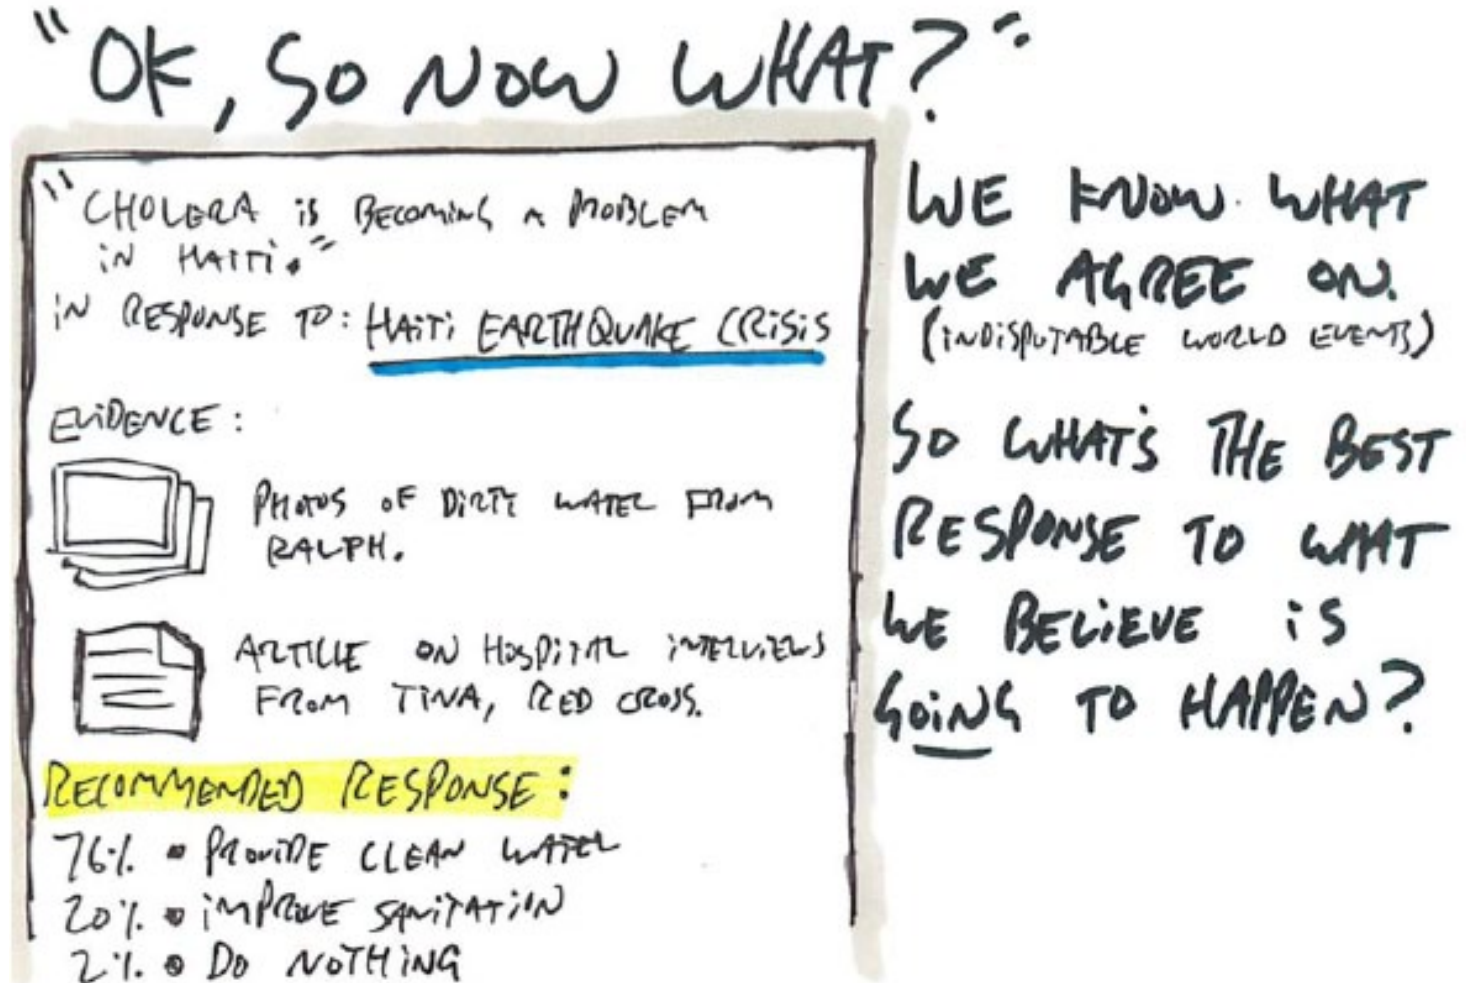 "OK, SO NOW WHAT?"
"CHOLERA is BECOMING A PROBLEM
iN HAiTi."
iN RESPONSE TO: HAiTi EARTHQUAKE CRiSiS
EViDENCE:
PHOTOS OF DiRTY WATER FROM
RALPH.
ARTICLE ON HOSPiTAL iNTERViEWS
FROM TiNA, RED CROSS.
RECOMMENDED RESPONSE:
76% • PROViDE CLEAN WATER
20% • iMPROVE SANiTATiON
2% • DO NOTHiNG
WE KNOW WHAT
WE AGREE ON.
(iNDiSPUTABLE WORLD EVENTS)
SO WHAT'S THE BEST
RESPONSE TO WHAT
WE BELiEVE iS
GOiNG TO HAPPEN?